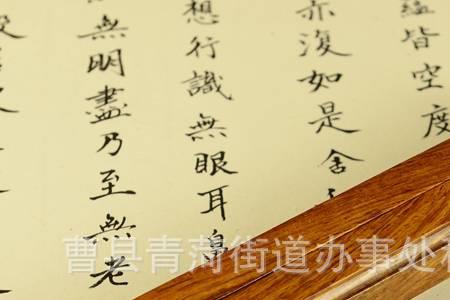 蘊皆空度
亦復如是舍
想行識無眼耳鼻
無明盡乃至無老
曹县青菏街道办事处